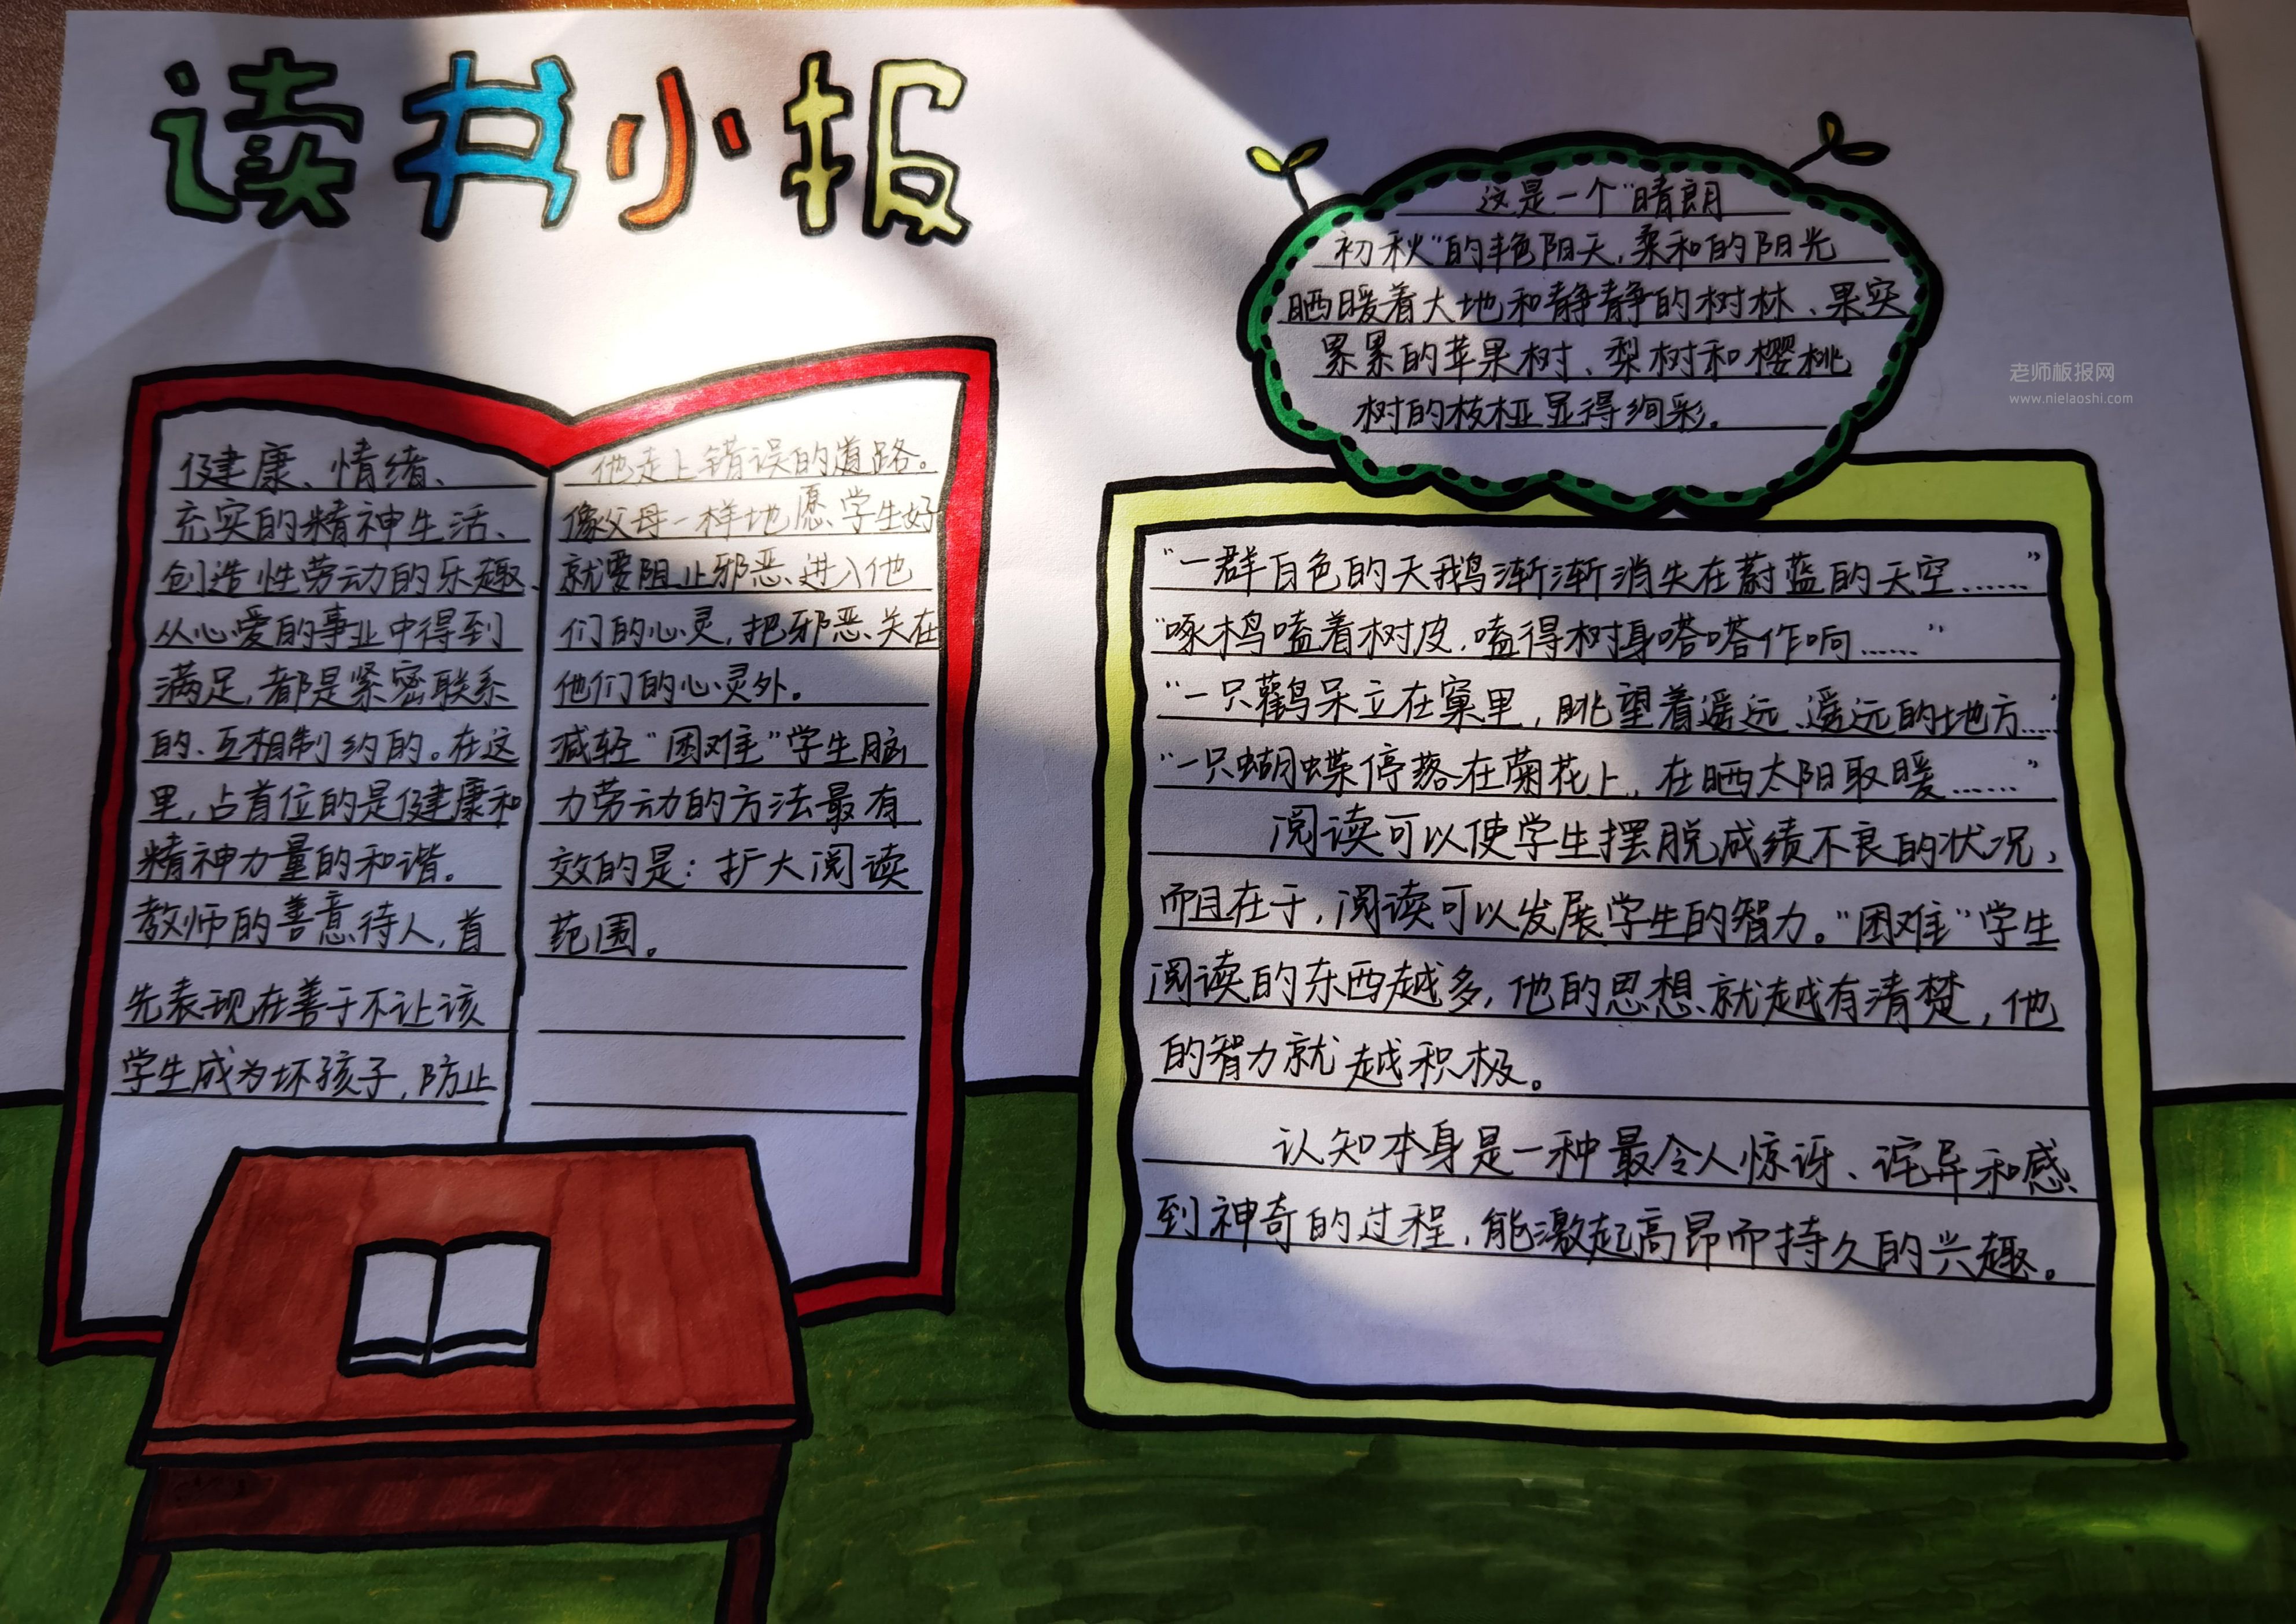 读书小报
健康、情绪、
充实的精神生活、
创造性劳动的乐趣、
从心爱的事业中得到
满足,都是紧密联系
的、互相制约的。在这
里,占首位的是健康和
精神力量的和谐。
教师的善意待人,首
先表现在善于不让该
学生成为坏孩子,防止
他走上错误的道路。
像父母一样地愿学生好
就要阻止邪恶进入他
们的心灵,把邪恶关在
他们的心灵外。
减轻“困难”学生脑
力劳动的方法最有
效的是:扩大阅读
范围。
这是一个“晴朗
初秋”的艳阳天,柔和的阳光
晒暖着大地和静静的树林、果实
累累的苹果树、梨树和樱桃
树的枝桠显得绚彩。
老师板报网
www.nielaoshi.com
“一群白色的天鹅渐渐消失在蔚蓝的天空……”
“啄木鸟嗑着树皮,嗑得树身嗒嗒作响……”
“一只鹳呆立在窠里,眺望着遥远、遥远的地方……”
“一只蝴蝶停落在菊花上,在晒太阳取暖……”
阅读可以使学生摆脱成绩不良的状况,
而且在于,阅读可以发展学生的智力。“困难”学生
阅读的东西越多,他的思想就越有清楚,他
的智力就越积极。
认知本身是一种最令人惊讶、诧异和感
到神奇的过程,能激起高昂而持久的兴趣。